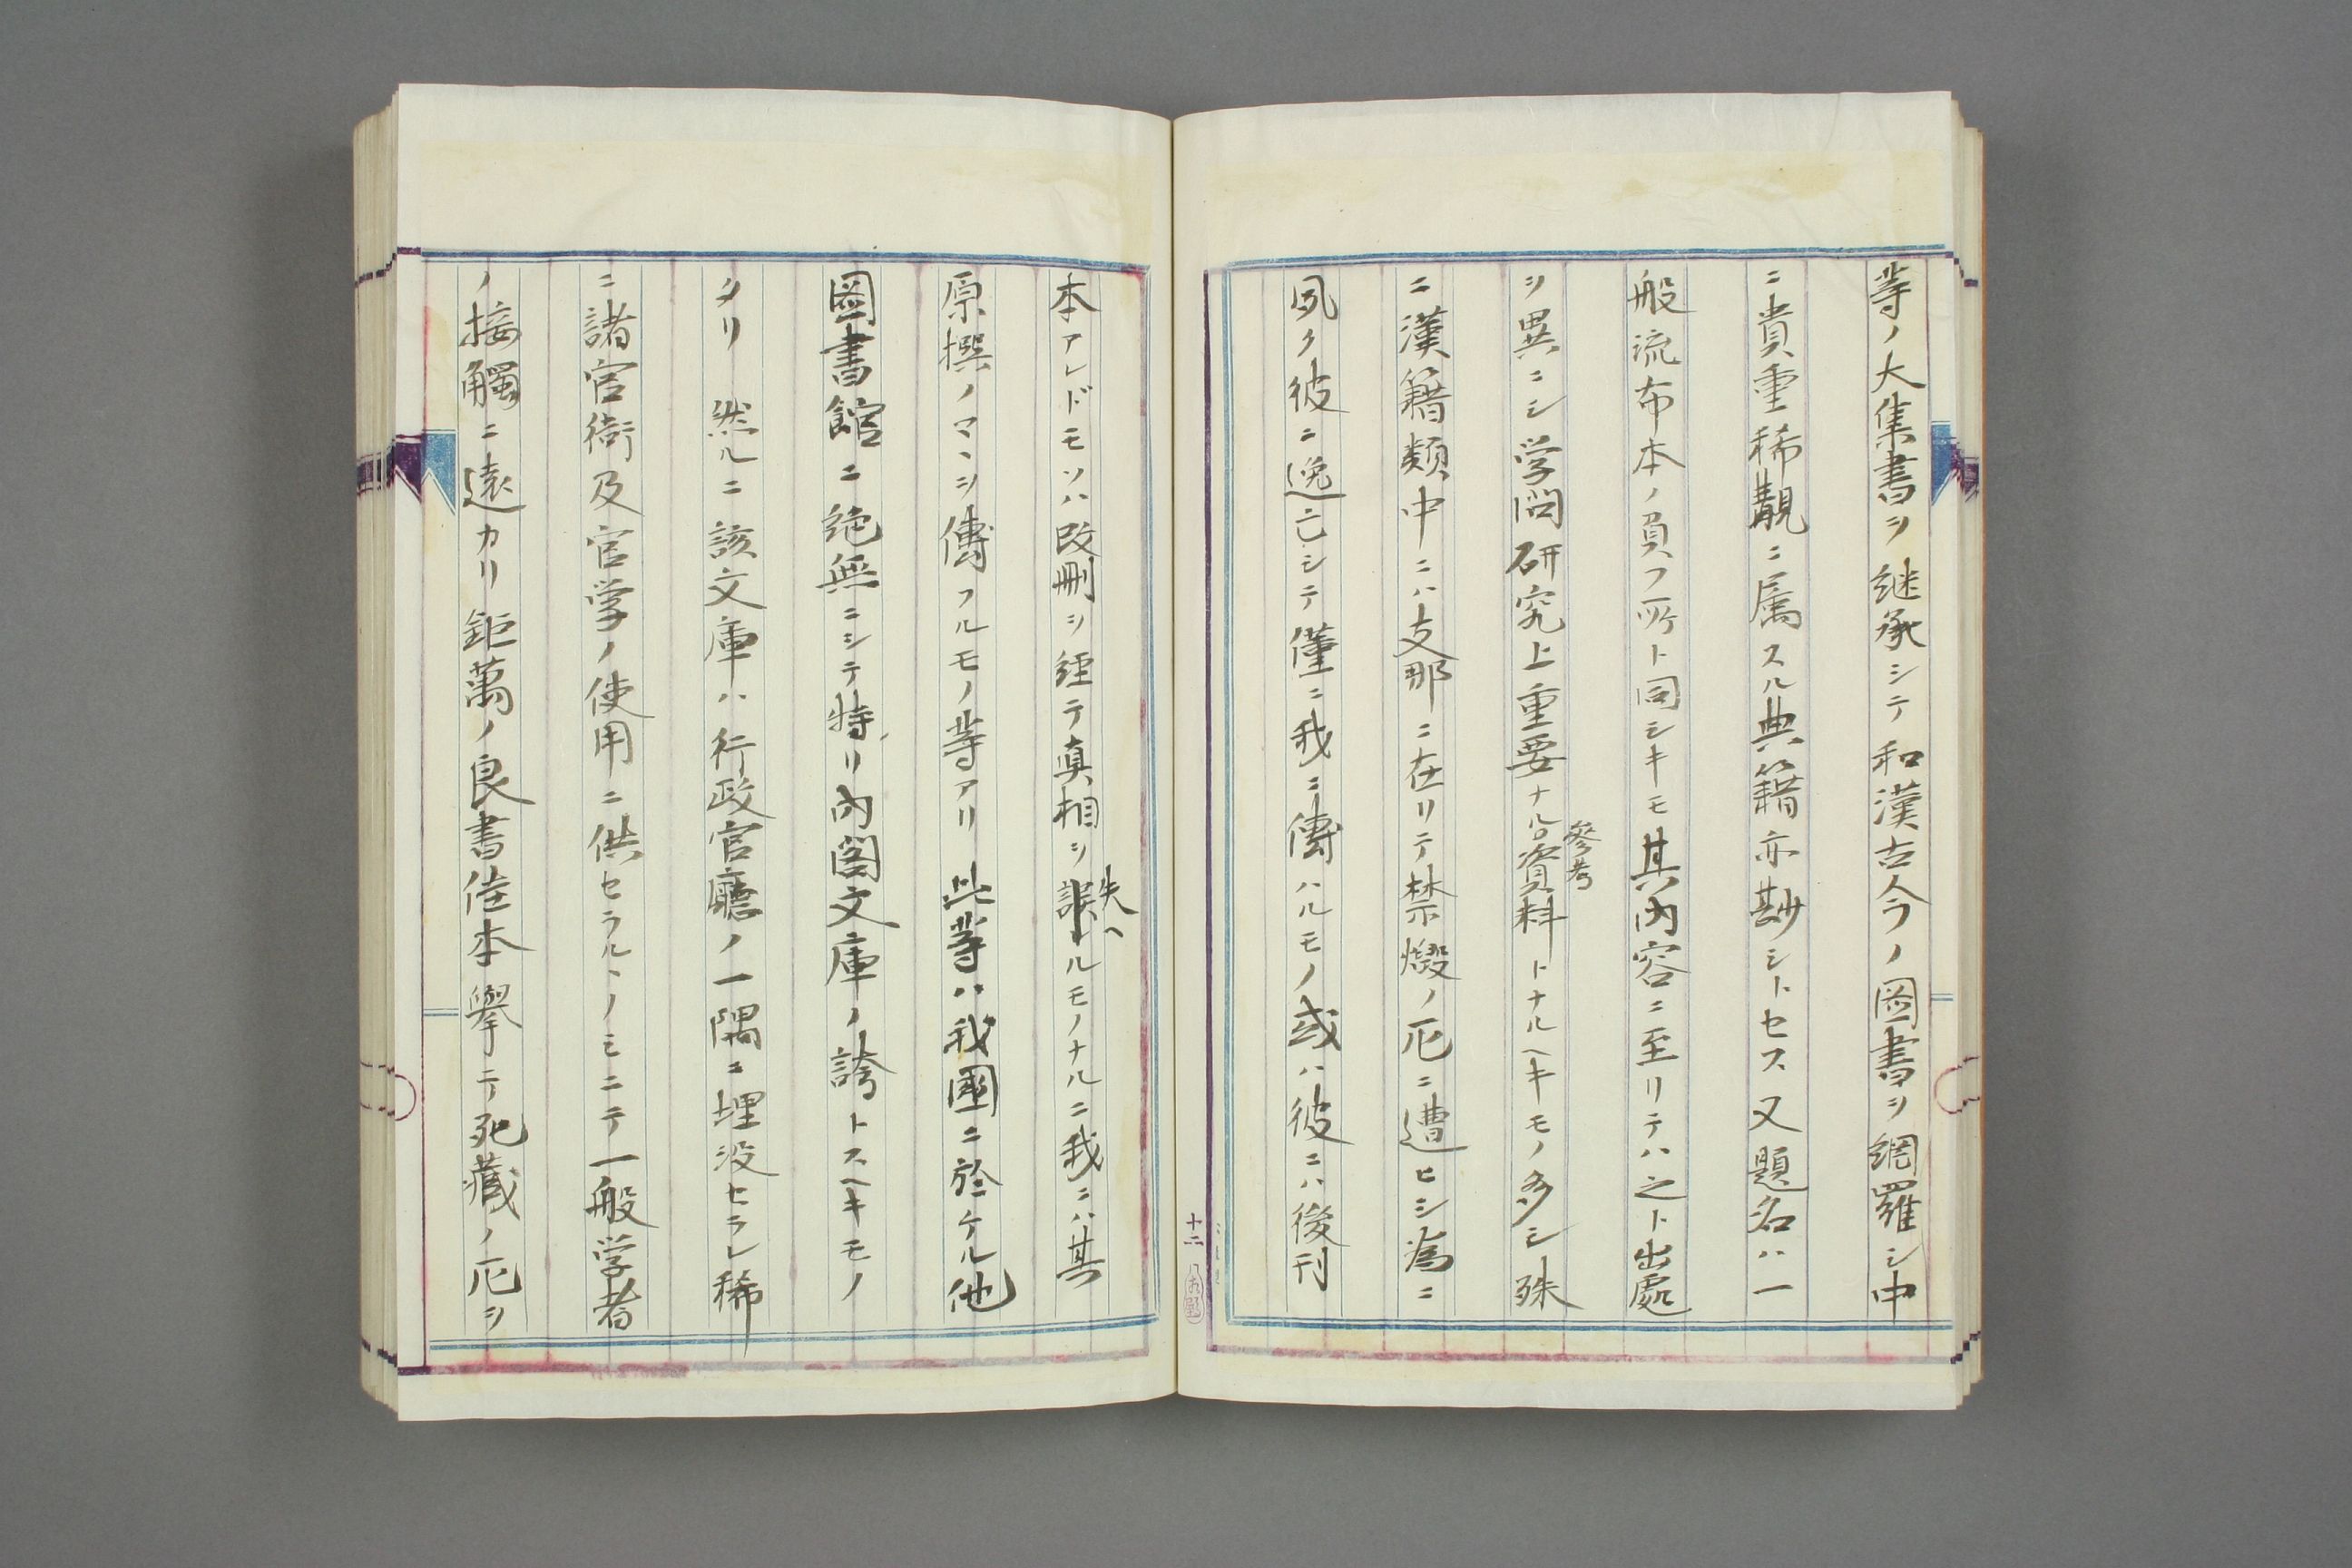 等ノ大集書ヲ継承シテ和漢古今ノ圖書ヲ網羅シ中
ニ貴重稀覯ニ属スル典籍亦尠シトセス又題名ハ一
般流布本ノ負フ所ト同シキモ其內容ニ至リテハ之ト出處
ヲ異ニシ学問研究上重要ナル參考資料トナルヘキモノ多シ殊
ニ漢籍類中ニハ支那ニ在リテ禁燬ノ厄ニ遭ヒシ為ニ
夙ク彼ニ逸亡シテ僅ニ我ニ傳ハルモノ或ハ彼ニハ後刊
十二
本アレドモソハ改刪ヲ経テ真相ヲ誤レ失ヘルモノナルニ我ニハ其
原撰ノマヽヲ傳フルモノ等アリ此等ハ我國ニ於ケル他
圖書館ニ絶無ニシテ特リ內閣文庫ノ誇トスヘキモノ
タリ 然ルニ該文庫ハ行政官廳ノ一隅ニ埋没セラレ稀
ニ諸官衙及官学ノ使用ニ供セラルヽノミニテ一般学者
ノ接觸ニ遠カリ鉅萬ノ良書佳本擧テ死藏ノ厄ヲ